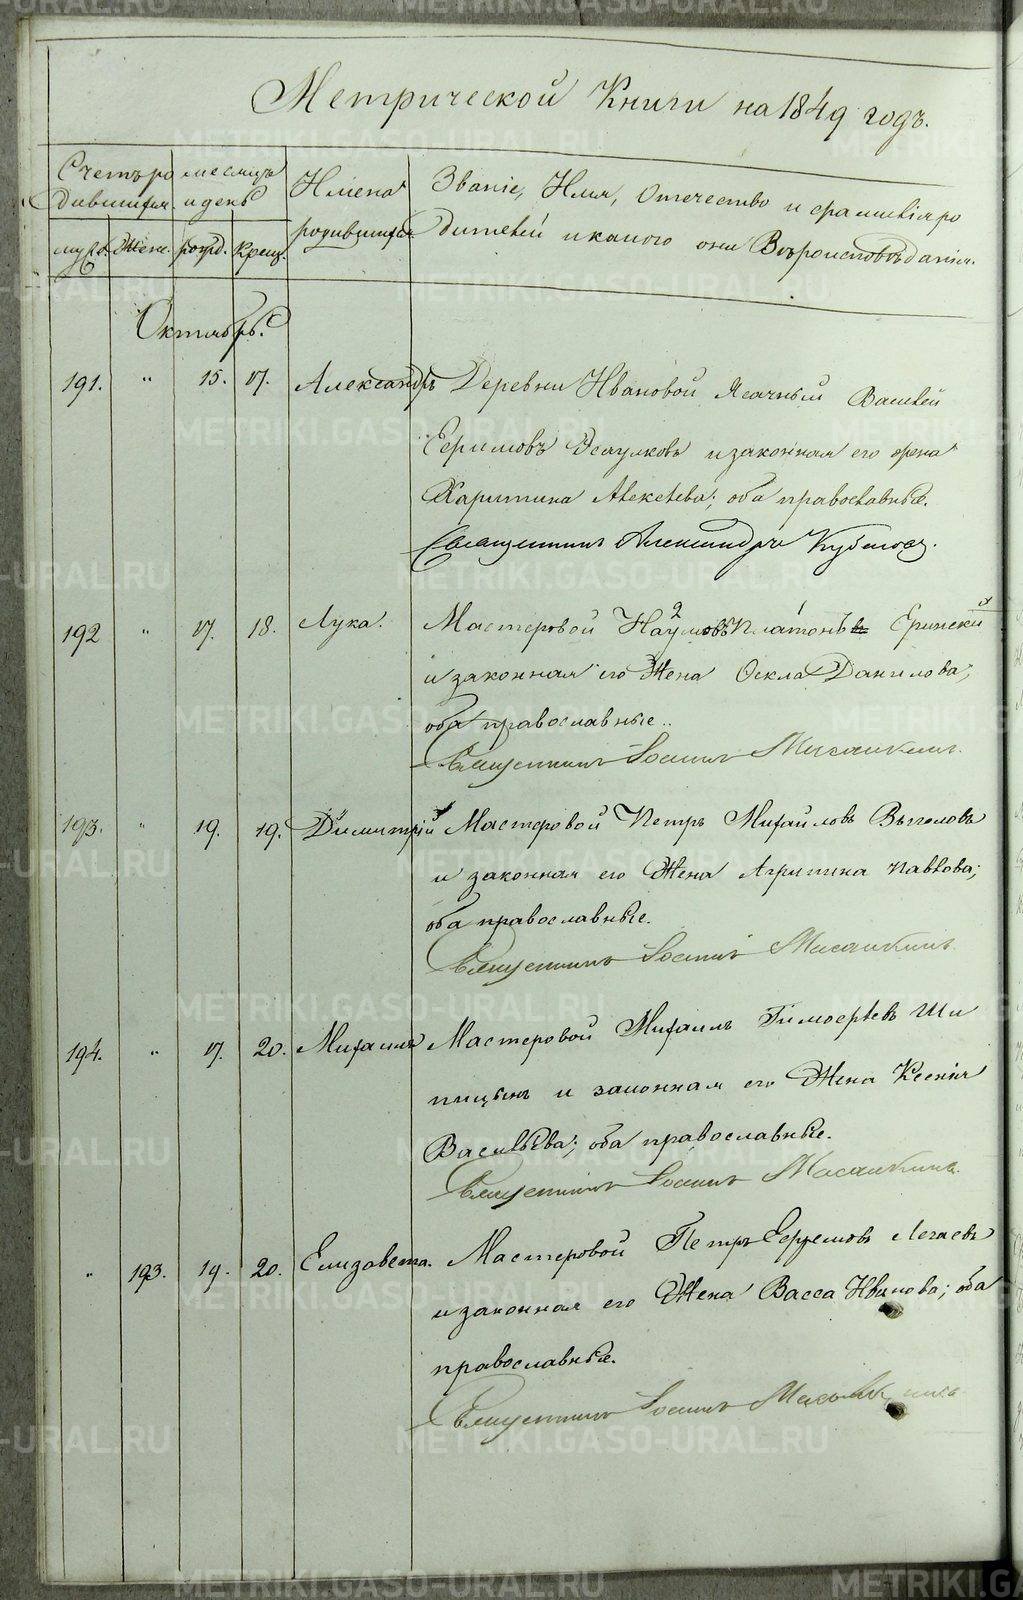 Метрической Книги на 1849 годъ.
Счетъ ро
дившихся
месяцъ
и день
Имена
родившихся
Званіе, Имя, Отечество и фамилія ро
дителей и какого они Вѣроисповѣданія.
муж. Жен. рожд. Крещ.
Октябрь.
191. " 15. 17. Александръ Деревни Ивановой Ясачный Василей
Ефимовъ и законная его жена
Харитина Алексѣева; оба православные.
Священникъ Александръ
192 " 17. 18. Лука. Мастеровой Наумовъ 2 Платонъ
и законная его Жена Фекла Данилова;
оба православные..
Священникъ Іоаннъ
193. " 19. 19. Димитрій Мастеровой Петръ Михайловъ
и законная его Жена Агрипина Павлова;
оба православные.
Священникъ Іоаннъ
194. " 17. 20. Михаилъ Мастеровой Михаилъ Тимофѣевъ Ши
пицынъ и законная его Жена Ксенія
Васильева; оба православные.
Священникъ Іоаннъ
" 193. 19. 20. Елизавета. Мастеровой Петръ Ефремовъ Легаевъ
и законная его Жена Васса Иванова; оба
православные.
Священникъ Іоаннъ
METRIKI.GASO-URAL.RU